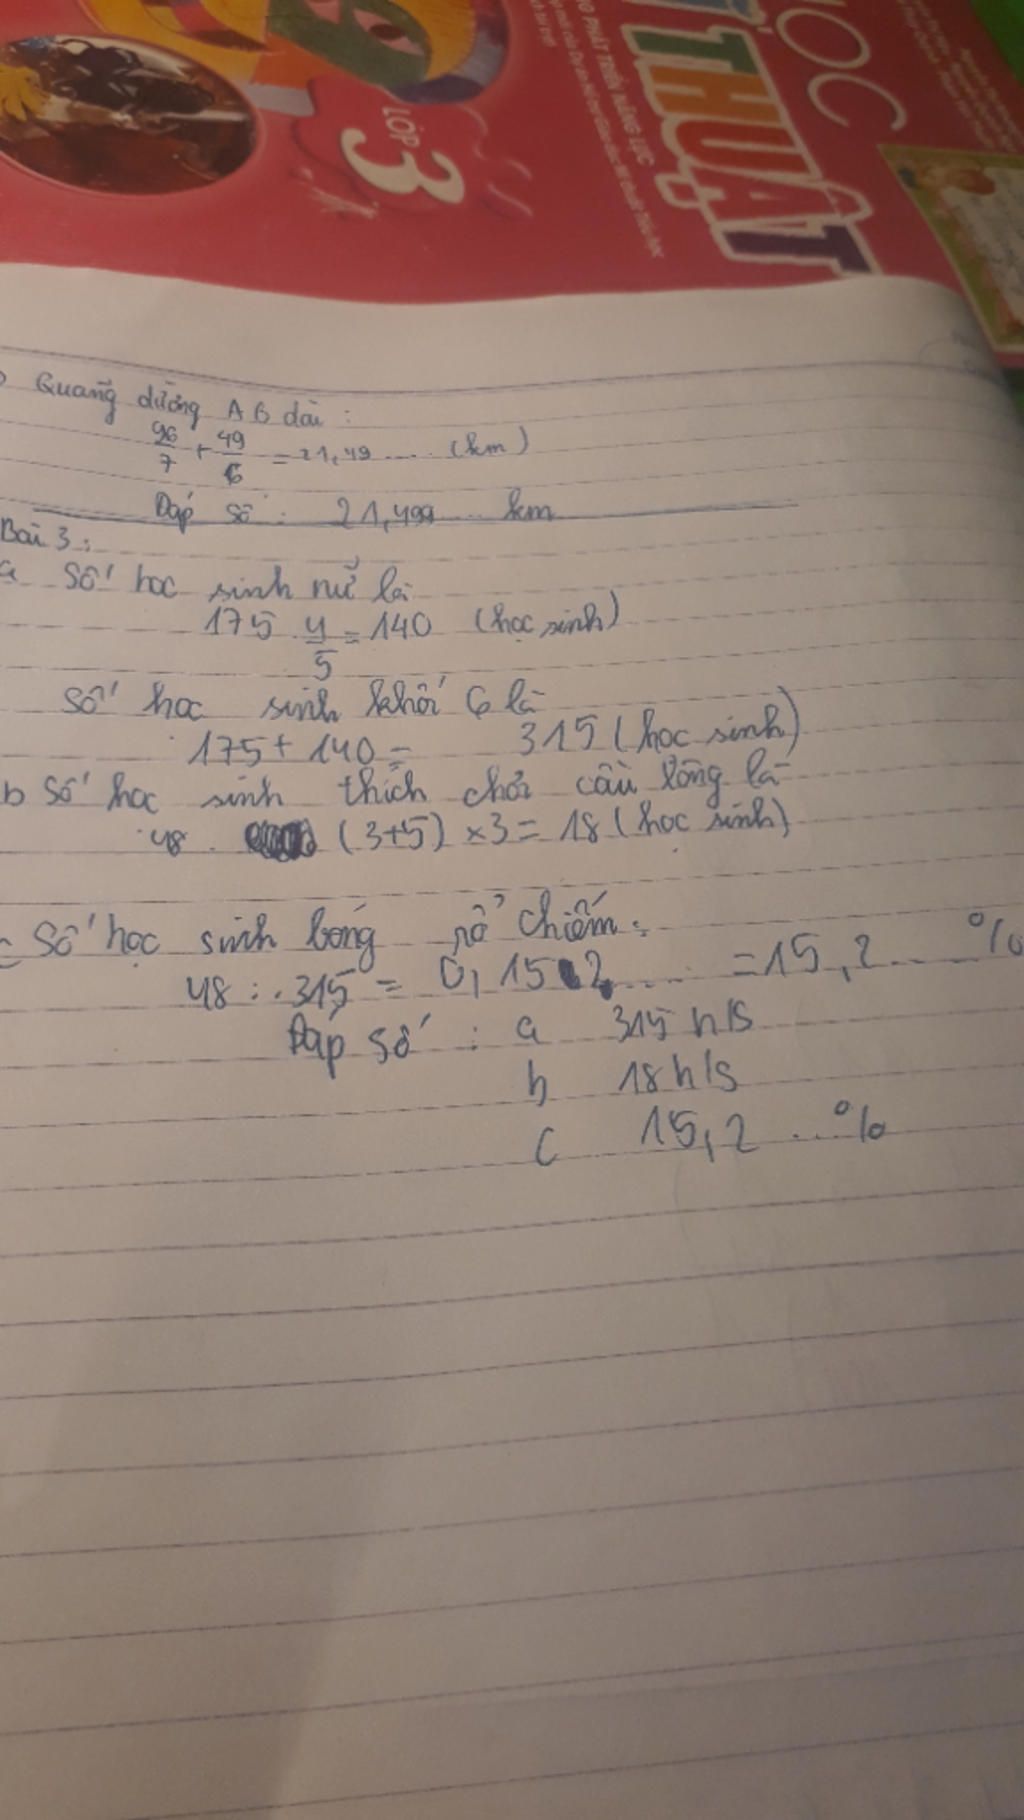 HỌC
MĨ THUẬT
LỚP
3
Quãng đường AB dài :
96/7 + 49/6 = 21,49 .... (km)
Đáp số : 21,499 ... km
Bài 3 :
a Số học sinh nữ là
175 . 4/5 = 140 (học sinh)
số học sinh khối 6 là
175 + 140 = 315 (học sinh)
b Số học sinh thích chơi cầu lông là
48 : (3+5) x 3 = 18 (học sinh)
c Số học sinh bóng rổ chiếm :
48 : 315 = 0,152 ... = 15,2 ... %
Đáp số : a 315 h/s
b 18 h/s
c 15,2 ... %